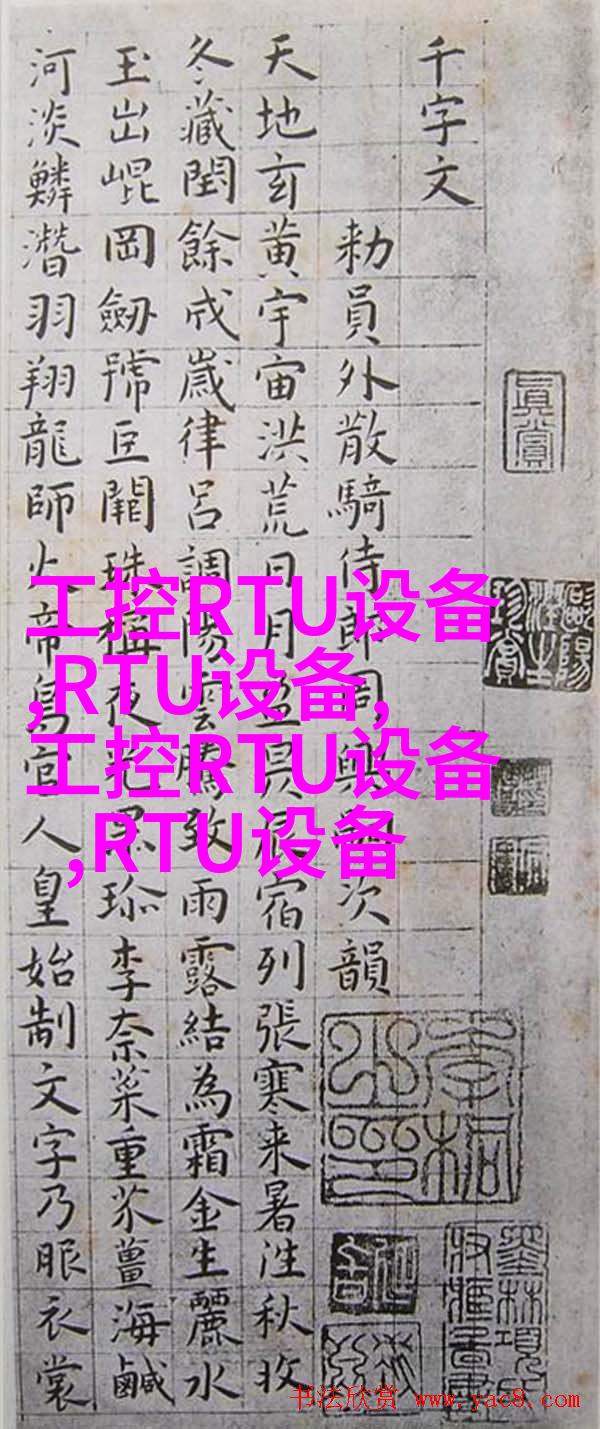 千字文
勑員外散騎侍郎周興嗣次韻
天地玄黃宇宙洪荒日月盈昃辰宿列張寒来暑往秋收
冬藏閏餘成歲律呂調陽雲騰致雨露結為霜金生麗水
玉出崐岡劒號巨闕珠稱夜光果珎李柰菜重芥薑海鹹
河淡鱗潛羽翔龍師火帝鳥官人皇始制文字乃服衣裳
真賞
工控RTU设备
,RTU设备,
工控RTU设备
,RTU设备
书法欣赏 www.yac8.com